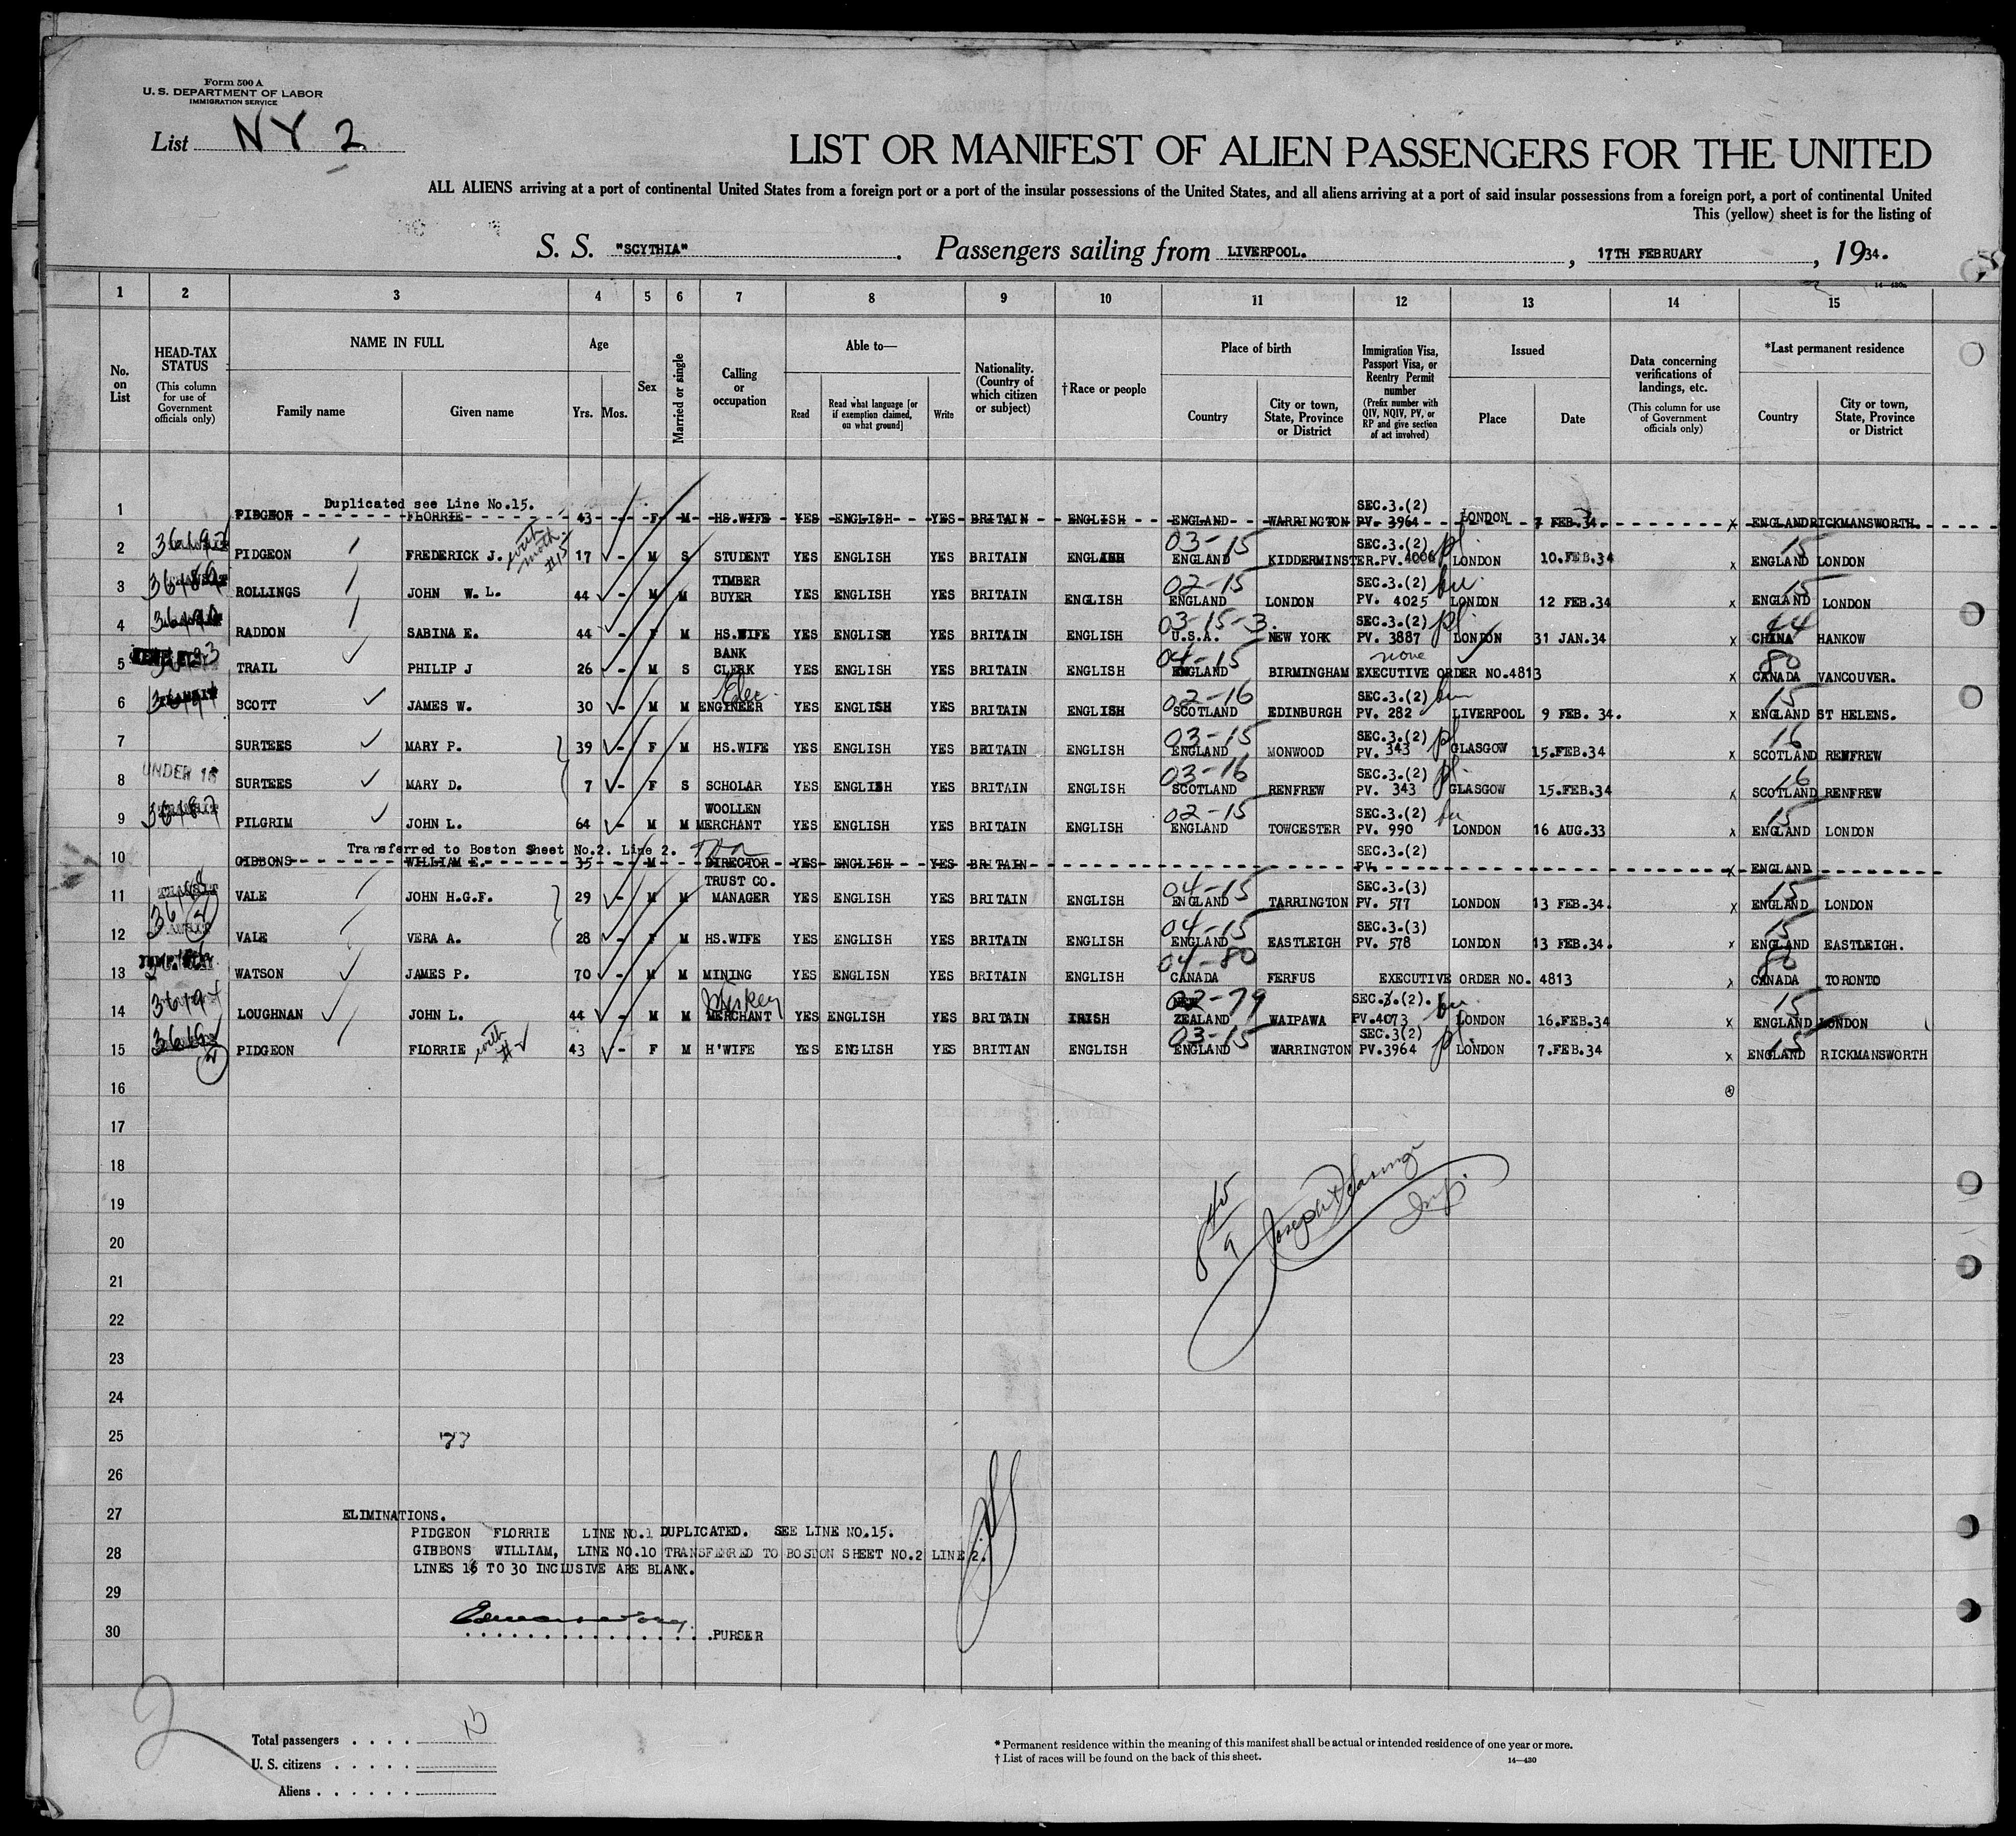 Form 500 A
U. S. DEPARTMENT OF LABOR
IMMIGRATION SERVICE
List NY 2
LIST OR MANIFEST OF ALIEN PASSENGERS FOR THE UNITED
ALL ALIENS arriving at a port of continental United States from a foreign port or a port of the insular possessions of the United States, and all aliens arriving at a port of said insular possessions from a foreign port, a port of continental United
This (yellow) sheet is for the listing of
S. S. "SCYTHIA". Passengers sailing from LIVERPOOL. , 17TH FEBRUARY , 1934.
14—430a
1 2 3 4 5 6 7 8 9 10 11 12 13 14 15
No. on List
HEAD-TAX STATUS (This column for use of Government officials only)
NAME IN FULL Family name Given name
Age Yrs. Mos.
Sex
Married or single
Calling or occupation
Able to— Read Read what language [or if exemption claimed, on what ground] Write
Nationality. (Country of which citizen or subject)
†Race or people
Place of birth Country City or town, State, Province or District
Immigration Visa, Passport Visa, or Reentry Permit number (Prefix number with QIV, NQIV, PV, or RP and give section of act involved)
Issued Place Date
Data concerning verifications of landings, etc. (This column for use of Government officials only)
*Last permanent residence Country City or town, State, Province or District
Duplicated see Line No.15.
1 PIDGEON FLORRIE 43 - F M HS.WIFE YES ENGLISH YES BRITAIN ENGLISH ENGLAND WARRINGTON SEC.3.(2) PV. 3964 LONDON 7 FEB.34. x ENGLAND RICKMANSWORTH.
2 PIDGEON FREDERICK J. with moth. #15 17 - M S STUDENT YES ENGLISH YES BRITAIN ENGLISH 03-15 ENGLAND KIDDERMINSTER. SEC.3.(2) PV. 4006 pl. LONDON 10.FEB.34 x 15 ENGLAND LONDON
3 ROLLINGS JOHN W. L. 44 - M M TIMBER BUYER YES ENGLISH YES BRITAIN ENGLISH 02-15 ENGLAND LONDON SEC.3.(2) PV. 4025 bu. LONDON 12 FEB.34 x 15 ENGLAND LONDON
4 RADDON SABINA E. 44 - F M HS.WIFE YES ENGLISH YES BRITAIN ENGLISH 03-15-3. U.S.A. NEW YORK SEC.3.(2) PV. 3887 pl. LONDON 31 JAN.34 x 44 CHINA HANKOW
5 TRAIL PHILIP J 26 - M S BANK CLERK YES ENGLISH YES BRITAIN ENGLISH 04-15 ENGLAND BIRMINGHAM none EXECUTIVE ORDER NO.4813 x 80 CANADA VANCOUVER.
6 SCOTT JAMES W. 30 - M M Elec. ENGINEER YES ENGLISH YES BRITAIN ENGLISH 02-16 SCOTLAND EDINBURGH SEC.3.(2) PV. 282 bu LIVERPOOL 9 FEB. 34. x 15 ENGLAND ST HELENS.
7 SURTEES MARY P. 39 - F M HS.WIFE YES ENGLISH YES BRITAIN ENGLISH 03-15 ENGLAND MONWOOD SEC.3.(2) PV. 343 pl GLASGOW 15.FEB.34 x 16 SCOTLAND RENFREW
8 UNDER 16 SURTEES MARY D. 7 - F S SCHOLAR YES ENGLISH YES BRITAIN ENGLISH 03-16 SCOTLAND RENFREW SEC.3.(2) PV. 343 pl. GLASGOW 15.FEB.34 x 16 SCOTLAND RENFREW
9 PILGRIM JOHN L. 64 - M M WOOLLEN MERCHANT YES ENGLISH YES BRITAIN ENGLISH 02-15 ENGLAND TOWCESTER SEC.3.(2) PV. 990 bu LONDON 16 AUG.33 x 15 ENGLAND LONDON
Transferred to Boston Sheet No.2. Line 2.
10 GIBBONS WILLIAM E. 35 - M DIRECTOR YES ENGLISH YES BRITAIN SEC.3.(2) PV. x ENGLAND
11 VALE JOHN H.G.F. 29 - M M TRUST CO. MANAGER YES ENGLISH YES BRITAIN ENGLISH 04-15 ENGLAND TARRINGTON SEC.3.(3) PV. 577 LONDON 13 FEB.34. x 15 ENGLAND LONDON
12 VALE VERA A. 28 - F M HS.WIFE YES ENGLISH YES BRITAIN ENGLISH 04-15 ENGLAND EASTLEIGH SEC.3.(3) PV. 578 LONDON 13 FEB.34. x 15 ENGLAND EASTLEIGH.
13 WATSON JAMES P. 70 - M M MINING YES ENGLISN YES BRITAIN ENGLISH 04-80 CANADA FERFUS EXECUTIVE ORDER NO. 4813 x 80 CANADA TORONTO
14 LOUGHNAN JOHN L. 44 - M M Whiskey MERCHANT YES ENGLISH YES BRITAIN IRISH 02-79 NEW ZEALAND WAIPAWA SEC.3.(2). PV.4073 bu. LONDON 16.FEB.34 x 15 ENGLAND LONDON
15 PIDGEON FLORRIE with #2 43 - F M H'WIFE YES ENGLISH YES BRITIAN ENGLISH 03-15 ENGLAND WARRINGTON SEC.3(2) PV.3964 pl. LONDON 7.FEB.34 x 15 ENGLAND RICKMANSWORTH
16
17
18
19
20
21
22
23
24
25
26
27
28
29
30
77
ELIMINATIONS.
PIDGEON FLORRIE LINE NO.1 DUPLICATED. SEE LINE NO.15.
GIBBONS WILLIAM, LINE NO.10 TRANSFERRED TO BOSTON SHEET NO.2 LINE 2.
LINES 16 TO 30 INCLUSIVE ARE BLANK.
PURSER
2
Total passengers
U. S. citizens
Aliens
* Permanent residence within the meaning of this manifest shall be actual or intended residence of one year or more.
† List of races will be found on the back of this sheet.
14—430